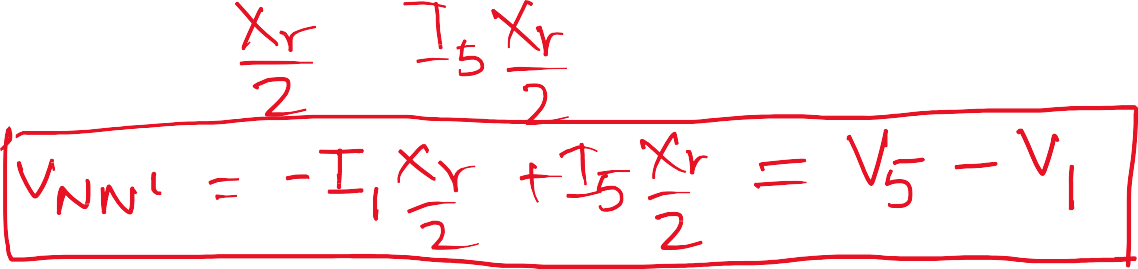 X_r/2 I_5 X_r/2
V_NN' = -I_1 X_r/2 + I_5 X_r/2 = V_5 - V_1